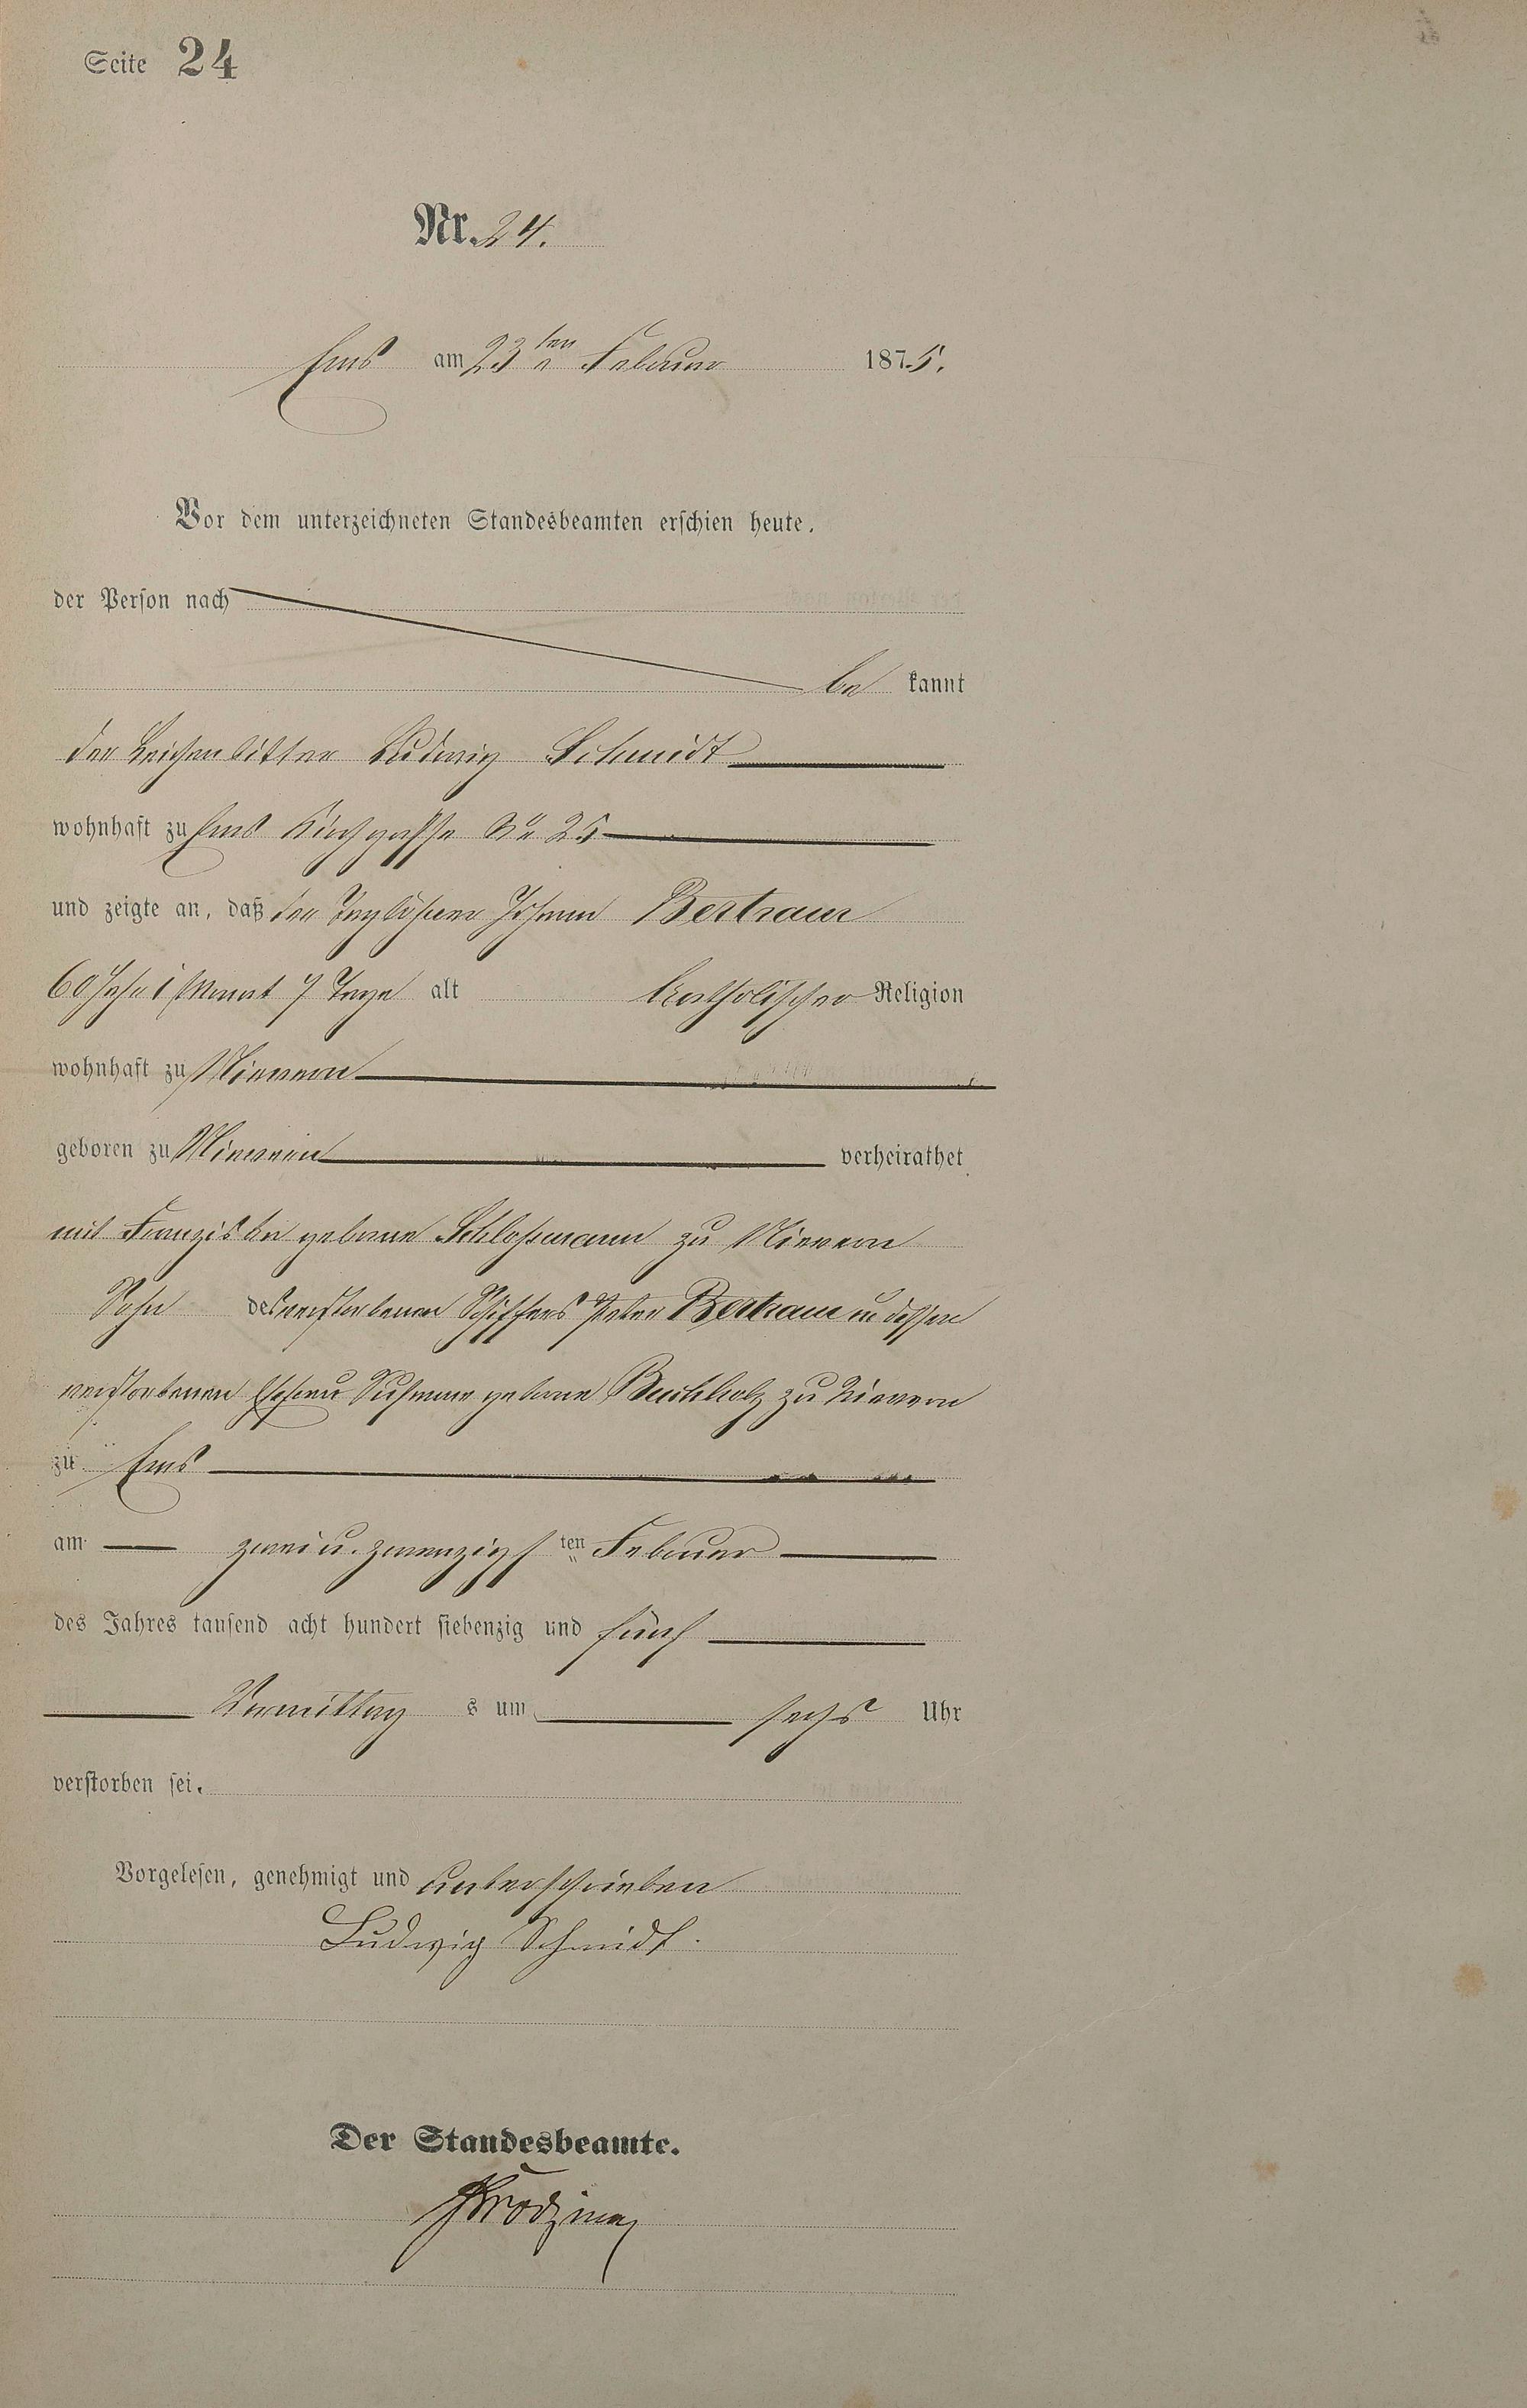 Seite 24
Nr. 24.
Ems am 23ten Februar 1875.
Vor dem unterzeichneten Standesbeamten erschien heute,
der Person nach
be kannt
der Leichenbitter Ludwig Schmidt
wohnhaft zu Ems Kirchgasse No 25
und zeigte an, daß der Taglöhner Johann Bertram
60 Jahr 1 Monat 7 Tage alt katholischer Religion
wohnhaft zu Nievern
geboren zu Nievern verheirathet
mit Franziska geborne Schloßmann zu Nievern
Sohn des verstorbenen Schiffers Peter Bertram u dessen
verstorbenen Ehefrau Susanne geborne Buchholz zu Nievern
zu Ems
am zwei u. zwanzigsten Februar
des Jahres tausend acht hundert siebenzig und fünf
Vormittag s um sechs Uhr
verstorben sei.
Vorgelesen, genehmigt und unterschrieben
Ludwig Schmidt.
Der Standesbeamte.